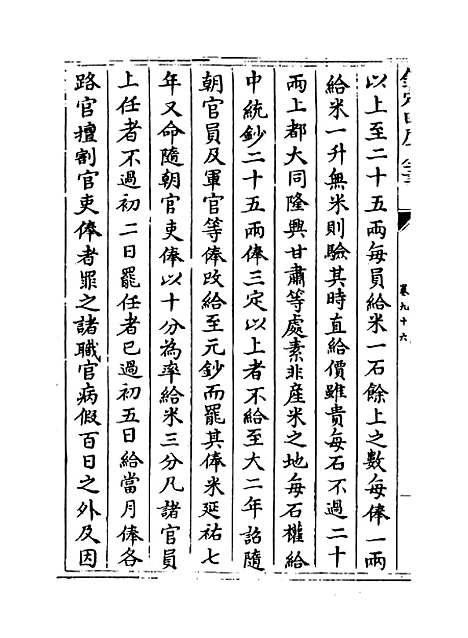 以上至二十五兩每員給米一石餘上之數每俸一兩
給米一升無米則驗其時直給價雖貴每石不過二十
兩上都大同隆興甘肅等處素非産米之地每石權給
中統鈔二十五兩俸三定以上者不給至大二年詔隨
朝官員及軍官等俸改給至元鈔而罷其俸米延祐七
年又命隨朝官吏俸以十分為率給米三分凡諸官員
上任者不過初二日罷任者已過初五日給當月俸各
路官擅割官吏俸者罪之諸職官病假百日之外及因
卷九十六